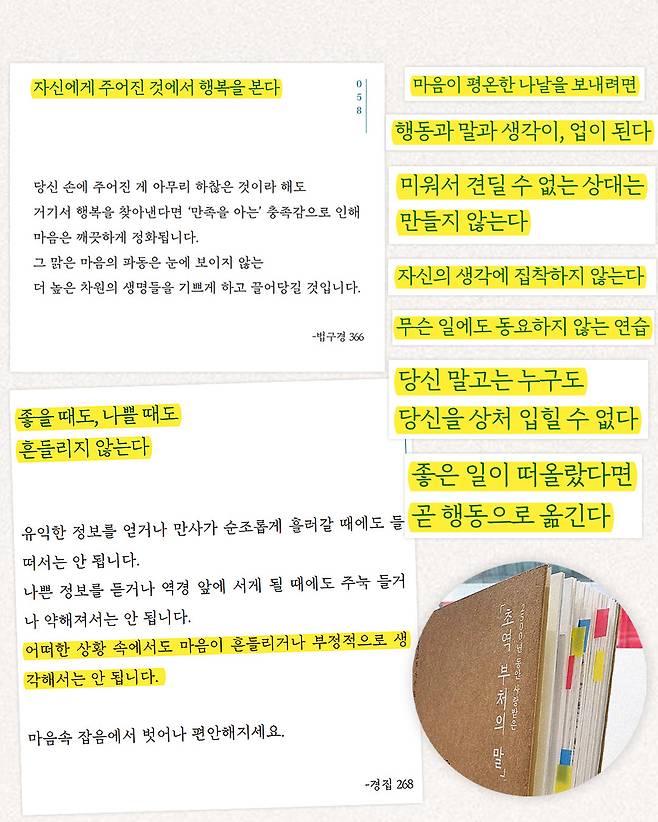 자신에게 주어진 것에서 행복을 본다
058
당신 손에 주어진 게 아무리 하찮은 것이라 해도
거기서 행복을 찾아낸다면 ‘만족을 아는’ 충족감으로 인해
마음은 깨끗하게 정화됩니다.
그 맑은 마음의 파동은 눈에 보이지 않는
더 높은 차원의 생명들을 기쁘게 하고 끌어당길 것입니다.
-법구경 366
좋을 때도, 나쁠 때도
흔들리지 않는다
유익한 정보를 얻거나 만사가 순조롭게 흘러갈 때에도 들
떠서는 안 됩니다.
나쁜 정보를 듣거나 역경 앞에 서게 될 때에도 주눅 들거
나 약해져서는 안 됩니다.
어떠한 상황 속에서도 마음이 흔들리거나 부정적으로 생
각해서는 안 됩니다.
마음속 잡음에서 벗어나 편안해지세요.
-경집 268
마음이 평온한 나날을 보내려면
행동과 말과 생각이, 업이 된다
미워서 견딜 수 없는 상대는
만들지 않는다
자신의 생각에 집착하지 않는다
무슨 일에도 동요하지 않는 연습
당신 말고는 누구도
당신을 상처 입힐 수 없다
좋은 일이 떠올랐다면
곧 행동으로 옮긴다
2500년 동안 사랑받은
「초역 부처의 말」